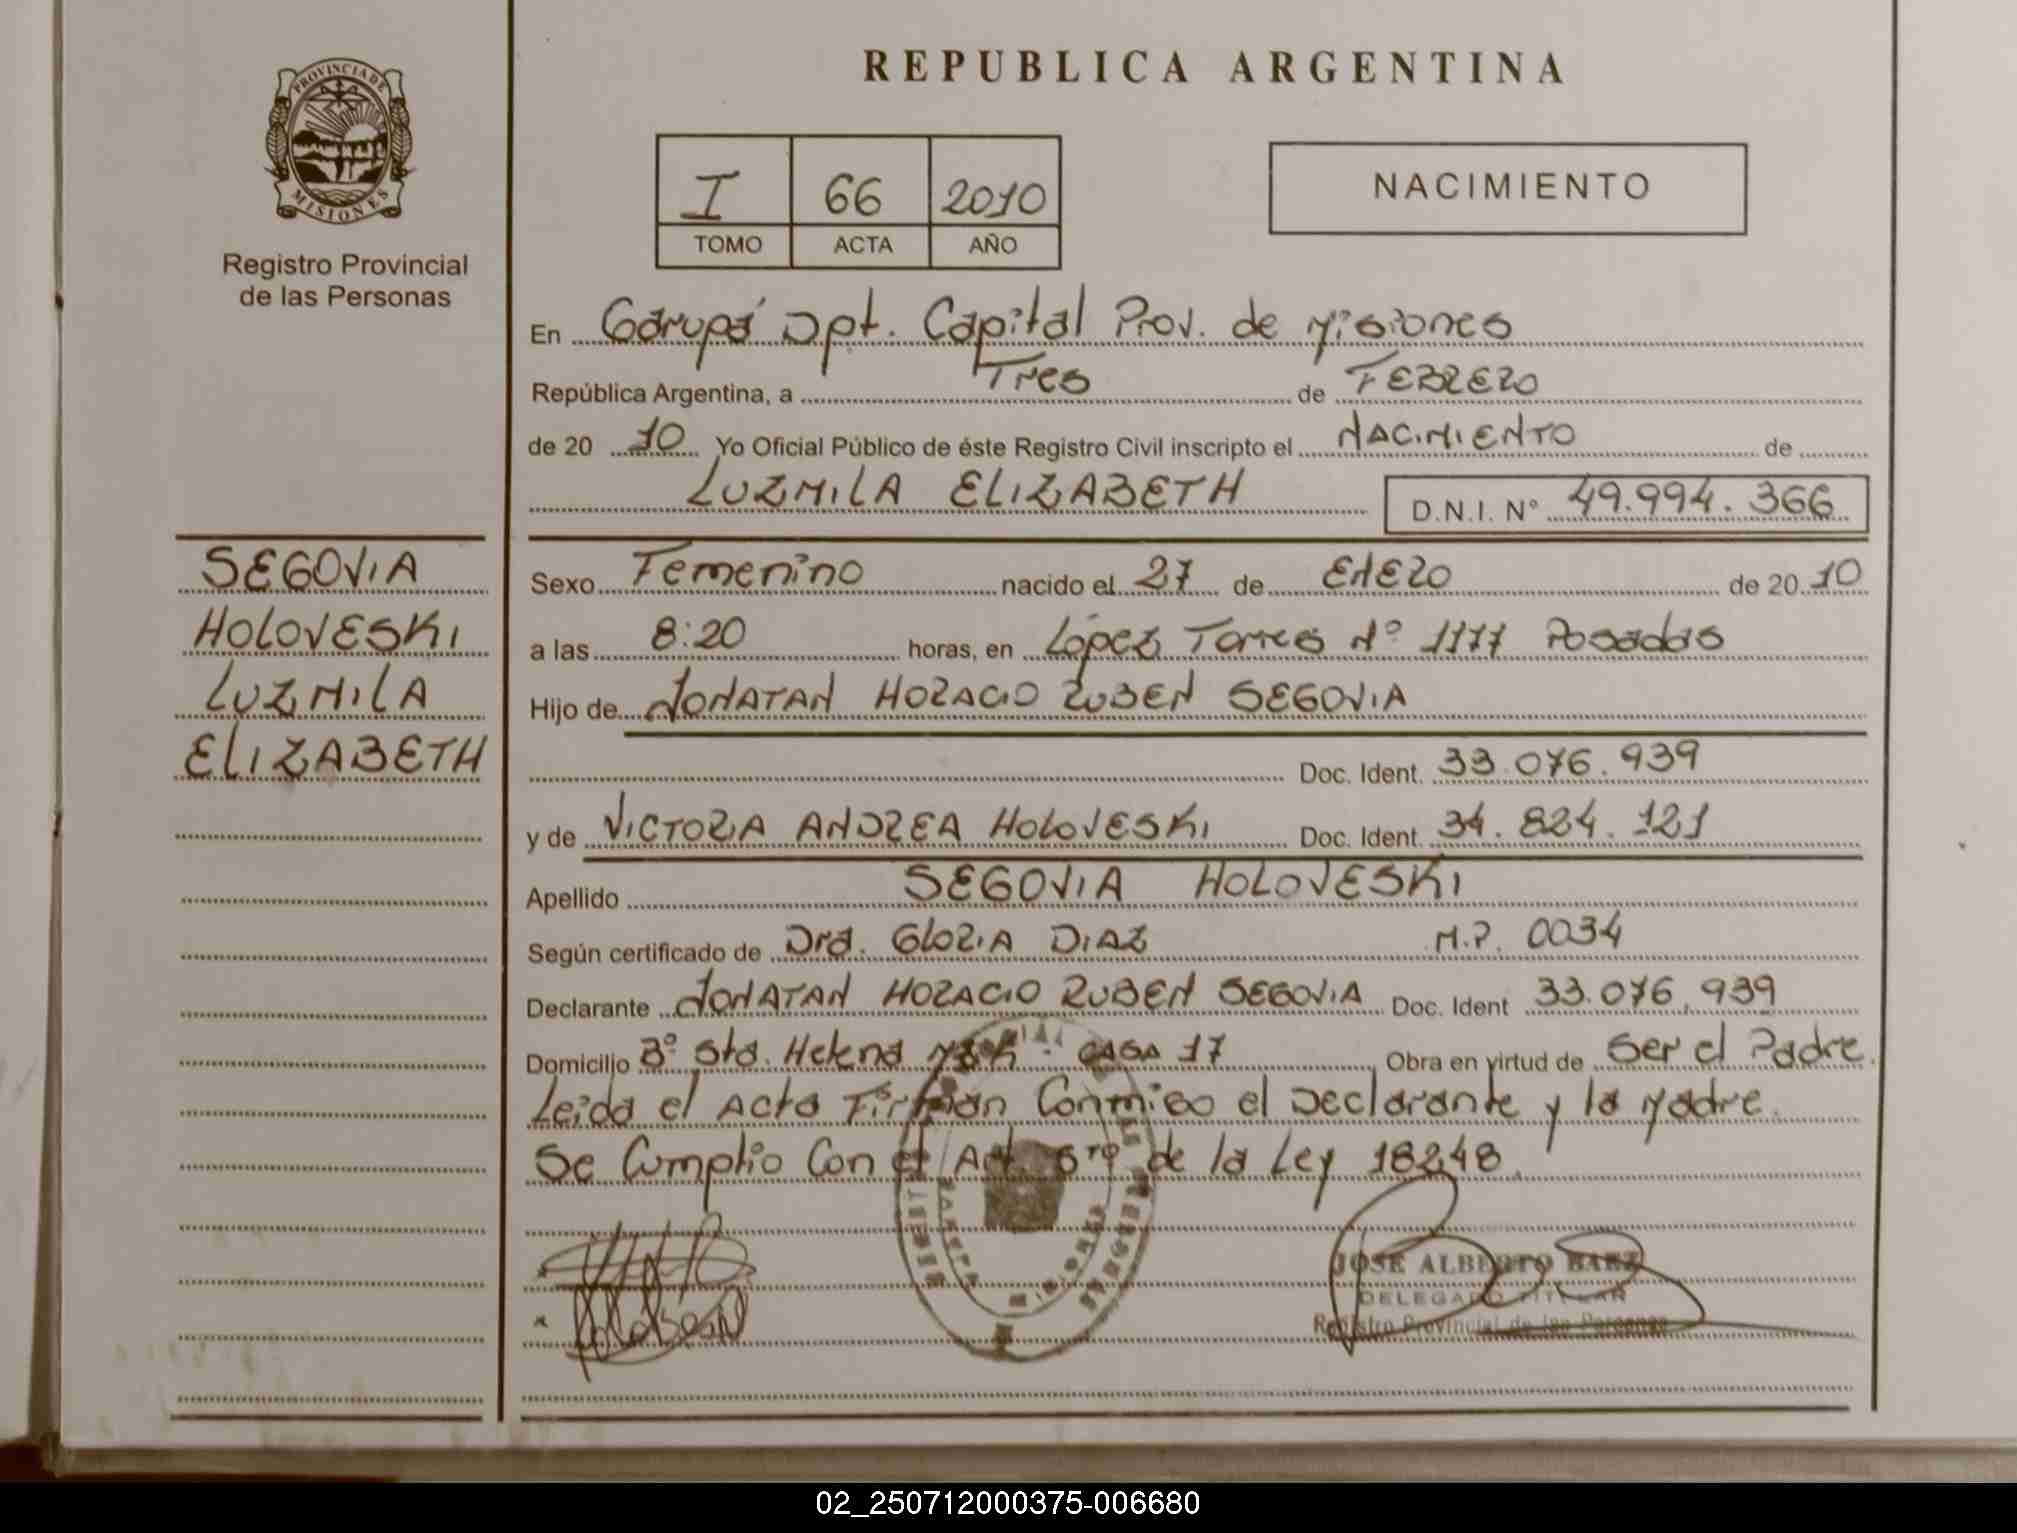 REPUBLICA ARGENTINA
PROVINCIA DE MISIONES
Registro Provincial
de las Personas
I 66 2010
TOMO ACTA AÑO
NACIMIENTO
En Garupá Dpt. Capital Prov. de Misiones
República Argentina, a Tres de FEBRERO
de 20 10 Yo Oficial Público de éste Registro Civil inscripto el NACIMIENTO de
LUZMILA ELIZABETH D.N.I. N° 49.994.366
SEGOVIA
HOLOVESKI
LUZMILA
ELIZABETH
Sexo Femenino nacido el 27 de ENERO de 20 10
a las 8:20 horas, en López Torres N° 1177 Posadas
Hijo de JONATAN HORACIO RUBEN SEGOVIA
Doc. Ident. 33.076.939
y de VICTORIA ANDREA HOLOVESKI Doc. Ident. 34.824.121
Apellido SEGOVIA HOLOVESKI
Según certificado de Dra. GLORIA DIAZ M.P. 0034
Declarante JONATAN HORACIO RUBEN SEGOVIA Doc. Ident 33.076.939
Domicilio B° Sta. Helena CASA 17 Obra en virtud de Ser el Padre.
Leida el Acta Firman Conmigo el Declarante y la Madre.
Se Cumplio Con el Art. de la Ley 18248.
JOSE ALBERTO BAEZ
DELEGADO TITULAR
Registro Provincial de las Personas
02_250712000375-006680